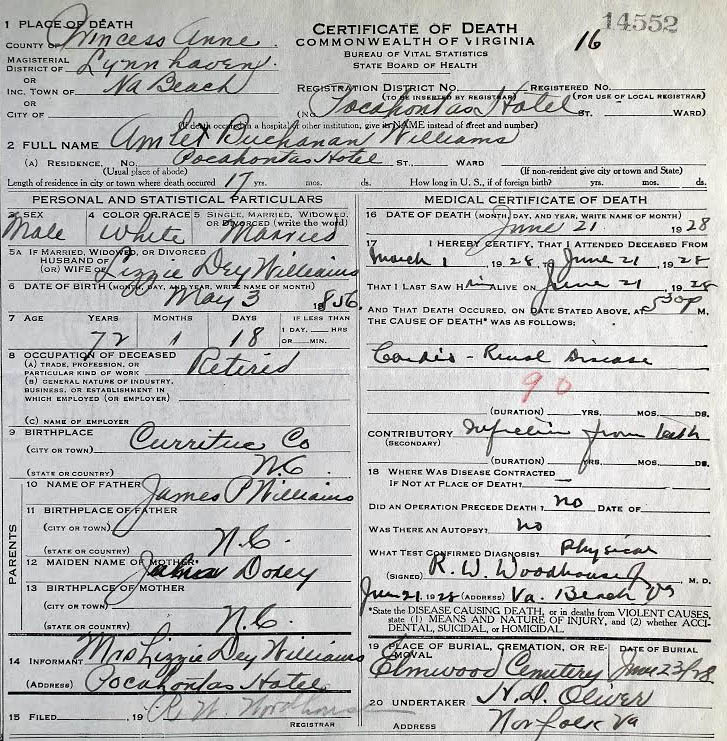 14552
1 PLACE OF DEATH
COUNTY OF Princess Anne
MAGISTERIAL DISTRICT OF Lynnhaven
OR
INC. TOWN OF Va Beach
OR
CITY OF
CERTIFICATE OF DEATH
COMMONWEALTH OF VIRGINIA
BUREAU OF VITAL STATISTICS
STATE BOARD OF HEALTH
16
REGISTRATION DISTRICT NO. REGISTERED NO.
(TO BE INSERTED BY REGISTRAR) (FOR USE OF LOCAL REGISTRAR)
(No Pocahontas Hotel ST. WARD)
(If death occurred in a hospital or other institution, give its NAME instead of street and number)
2 FULL NAME Buchanan Williams
(A) RESIDENCE, NO. Pocahontas Hotel ST., WARD
(Usual place of abode) (If non-resident give city or town and State)
Length of residence in city or town where death occured 17 yrs. mos. ds. How long in U. S., if of foreign birth? yrs. mos. ds.
PERSONAL AND STATISTICAL PARTICULARS
3 SEX Male
4 COLOR OR RACE White
5 SINGLE, MARRIED, WIDOWED, OR DIVORCED (write the word) Married
5A IF MARRIED, WIDOWED, OR DIVORCED
HUSBAND OF
(OR) WIFE OF Lizzie Dey Williams
6 DATE OF BIRTH (MONTH, DAY, AND YEAR, WRITE NAME OF MONTH)
May 3 1856
7 AGE YEARS MONTHS DAYS IF LESS THAN
72 1 18 1 DAY, HRS
OR MIN.
8 OCCUPATION OF DECEASED
(A) TRADE, PROFESSION, OR
PARTICULAR KIND OF WORK Retired
(B) GENERAL NATURE OF INDUSTRY,
BUSINESS, OR ESTABLISHMENT IN
WHICH EMPLOYED (OR EMPLOYER)
(C) NAME OF EMPLOYER
9 BIRTHPLACE
(CITY OR TOWN) Currituc Co
(STATE OR COUNTRY) N.C.
PARENTS
10 NAME OF FATHER James P Williams
11 BIRTHPLACE OF FATHER
(CITY OR TOWN)
(STATE OR COUNTRY) N.C.
12 MAIDEN NAME OF MOTHER Doxey
13 BIRTHPLACE OF MOTHER
(CITY OR TOWN)
(STATE OR COUNTRY) N.C.
14 INFORMANT Mrs Lizzie Dey Williams
(ADDRESS) Pocahontas Hotel
15 FILED 19 R W Woodhouse
REGISTRAR
MEDICAL CERTIFICATE OF DEATH
16 DATE OF DEATH (MONTH, DAY, AND YEAR, WRITE NAME OF MONTH)
June 21 1928
17 I HEREBY CERTIFY, THAT I ATTENDED DECEASED FROM
March 1 1928, TO June 21, 1928
THAT I LAST SAW Him ALIVE ON June 21, 1928
AND THAT DEATH OCCURED, ON DATE STATED ABOVE, AT 530p M.
THE CAUSE OF DEATH* WAS AS FOLLOWS:
Cardio - Renal Disease
90
(DURATION) YRS. MOS. DS.
CONTRIBUTORY Infection from teeth
(SECONDARY)
(DURATION) YRS. MOS. DS.
18 WHERE WAS DISEASE CONTRACTED
IF NOT AT PLACE OF DEATH?
DID AN OPERATION PRECEDE DEATH? no DATE OF
WAS THERE AN AUTOPSY? no
WHAT TEST CONFIRMED DIAGNOSIS? Physical
(SIGNED) R. W. Woodhouse Jr M. D.
June 21, 1928 (ADDRESS) Va. Beach Va
*State the DISEASE CAUSING DEATH, or in deaths from VIOLENT CAUSES,
state (1) MEANS AND NATURE OF INJURY, and (2) whether ACCI-
DENTAL, SUICIDAL, or HOMICIDAL.
19 PLACE OF BURIAL, CREMATION, OR RE-
MOVAL DATE OF BURIAL
Elmwood Cemetery June 23 1928
20 UNDERTAKER H.D. Oliver
ADDRESS Norfolk Va